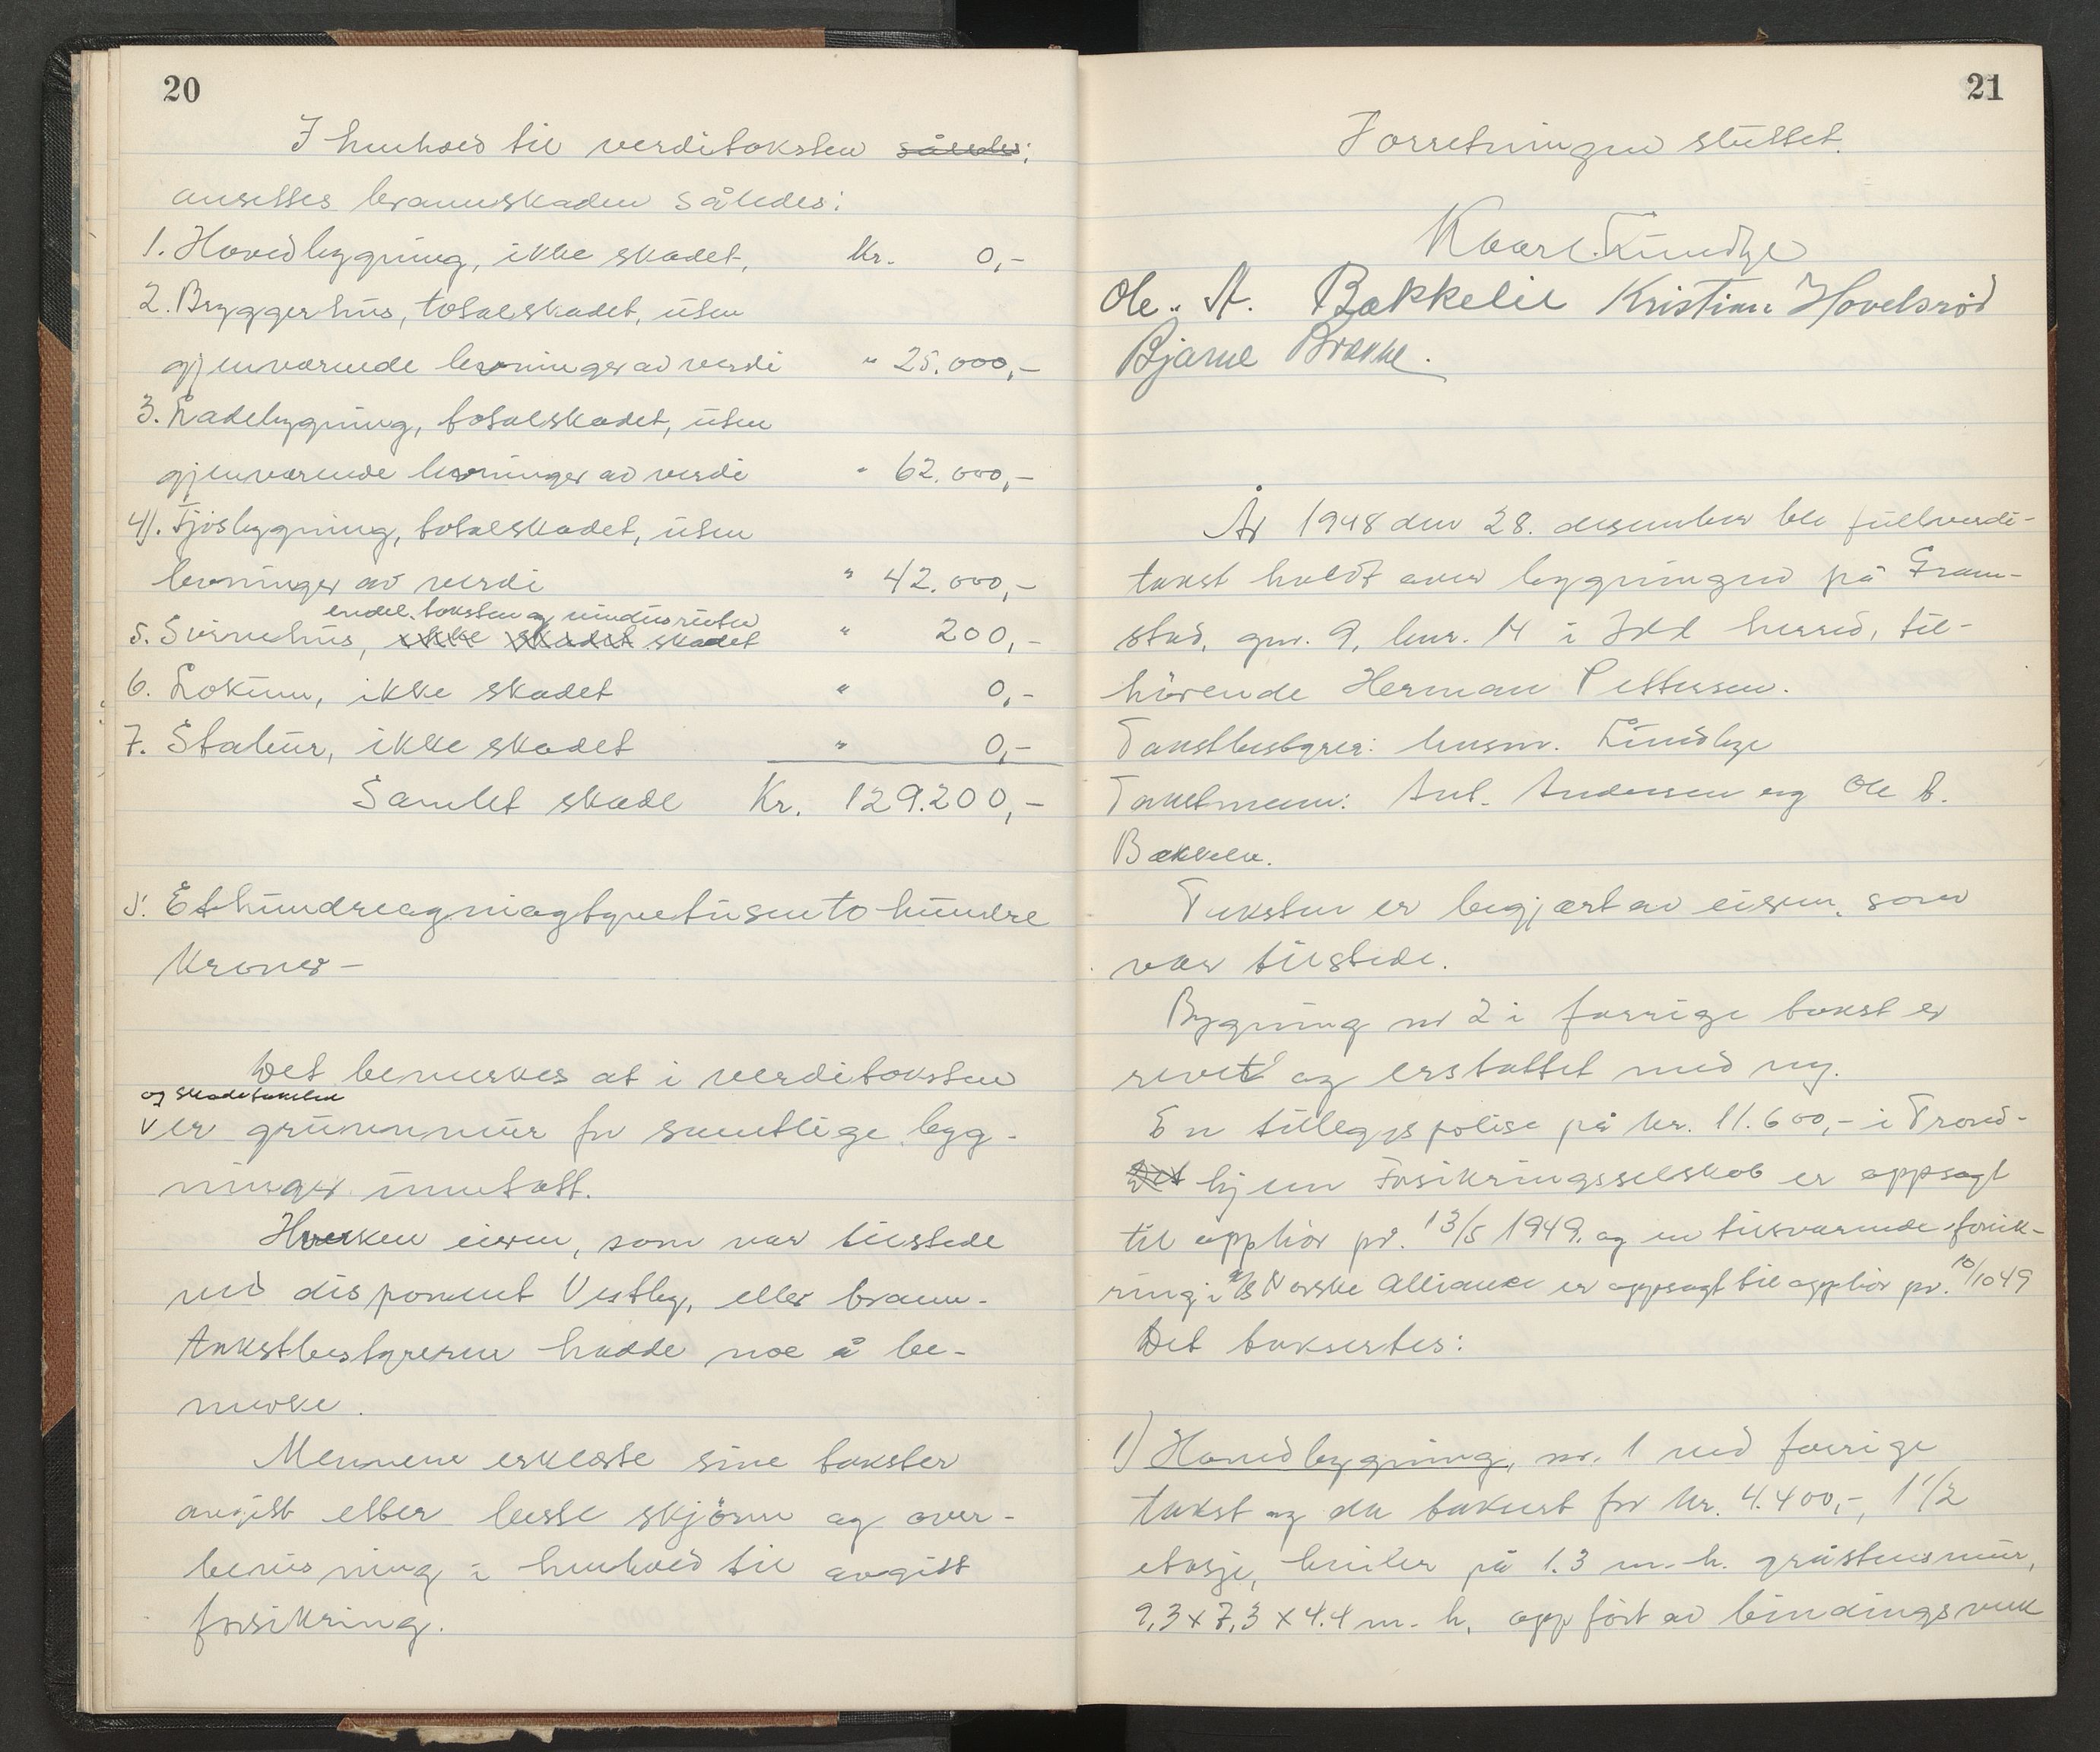 20
I henhold til verditaksten således:
ansettes brannskaden således:
1. Hovedbygning, ikke skadet, Kr. 0,-
2. Bryggerhus, totalskadet, uten
gjenværende levninger av verdi " 25.000,-
3. Ladebygning, totalskadet, uten
gjenværende levninger av verdi " 62.000,-
4). Fjøsbygning, totalskadet, uten
levninger av verdi " 42.000,-
endel taksten og vindusruter
5. Svinehus, ikke skadet skadet " 200,-
6. Lokum, ikke skadet " 0,-
7. Stabur, ikke skadet " 0,-
Samlet skade Kr. 129.200,-
Etthundreogniogtyvetusentohundre
Kroner-
Det bemerkes at i verditaksten
og skadetaksten
V er grunnmur for samtlige byg-
ninger inntatt.
Hverken eieren, som var tilstede
ved disponent Vestby, eller brann-
takstbestyreren hadde noe å be-
merke.
Mennene erklærte sine takster
avgitt etter beste skjönn og over-
bevisning i henhold til avgitt
forsikring.
21
Forretningen sluttet.
Kaare Lundbye
Ole. A. Bakkelie Kristian Hovelsröd
Bjarne Brække.
År 1948 den 28. desember ble fullverdi-
takst holdt over bygningene på Fram-
stad, gnr. 9, bnr. 14 i Idd herred, til-
hörende Herman Pettersen.
Takstbestyrer: lensm. Lundbye
Takstmenn: Ant. Andersen og Ole A.
Bakkelie.
Taksten er begjært av eieren, som
var tilstede.
Bygning nr 2 i forrige takst er
revet og erstattet med ny.
En tilleggspolise på kr. 11.600,- i Trond-
Det hjem Forsikringsselskab er oppsagt
til opphör pr. 13/5 1949. og en tilsvarende forsik-
ring i A/S Norske Alliance er oppsagt til opphör pr. 10/10 49
Det taksertes:
1) Hovedbygning, nr. 1 ved forrige
takst og da taksert for kr. 4.400,-, 1 1/2
etasje, hviler på 1.3 m. h. gråstensmur,
9,3 x 7,3 x 4.4 m. h, oppfört av bindingsverk